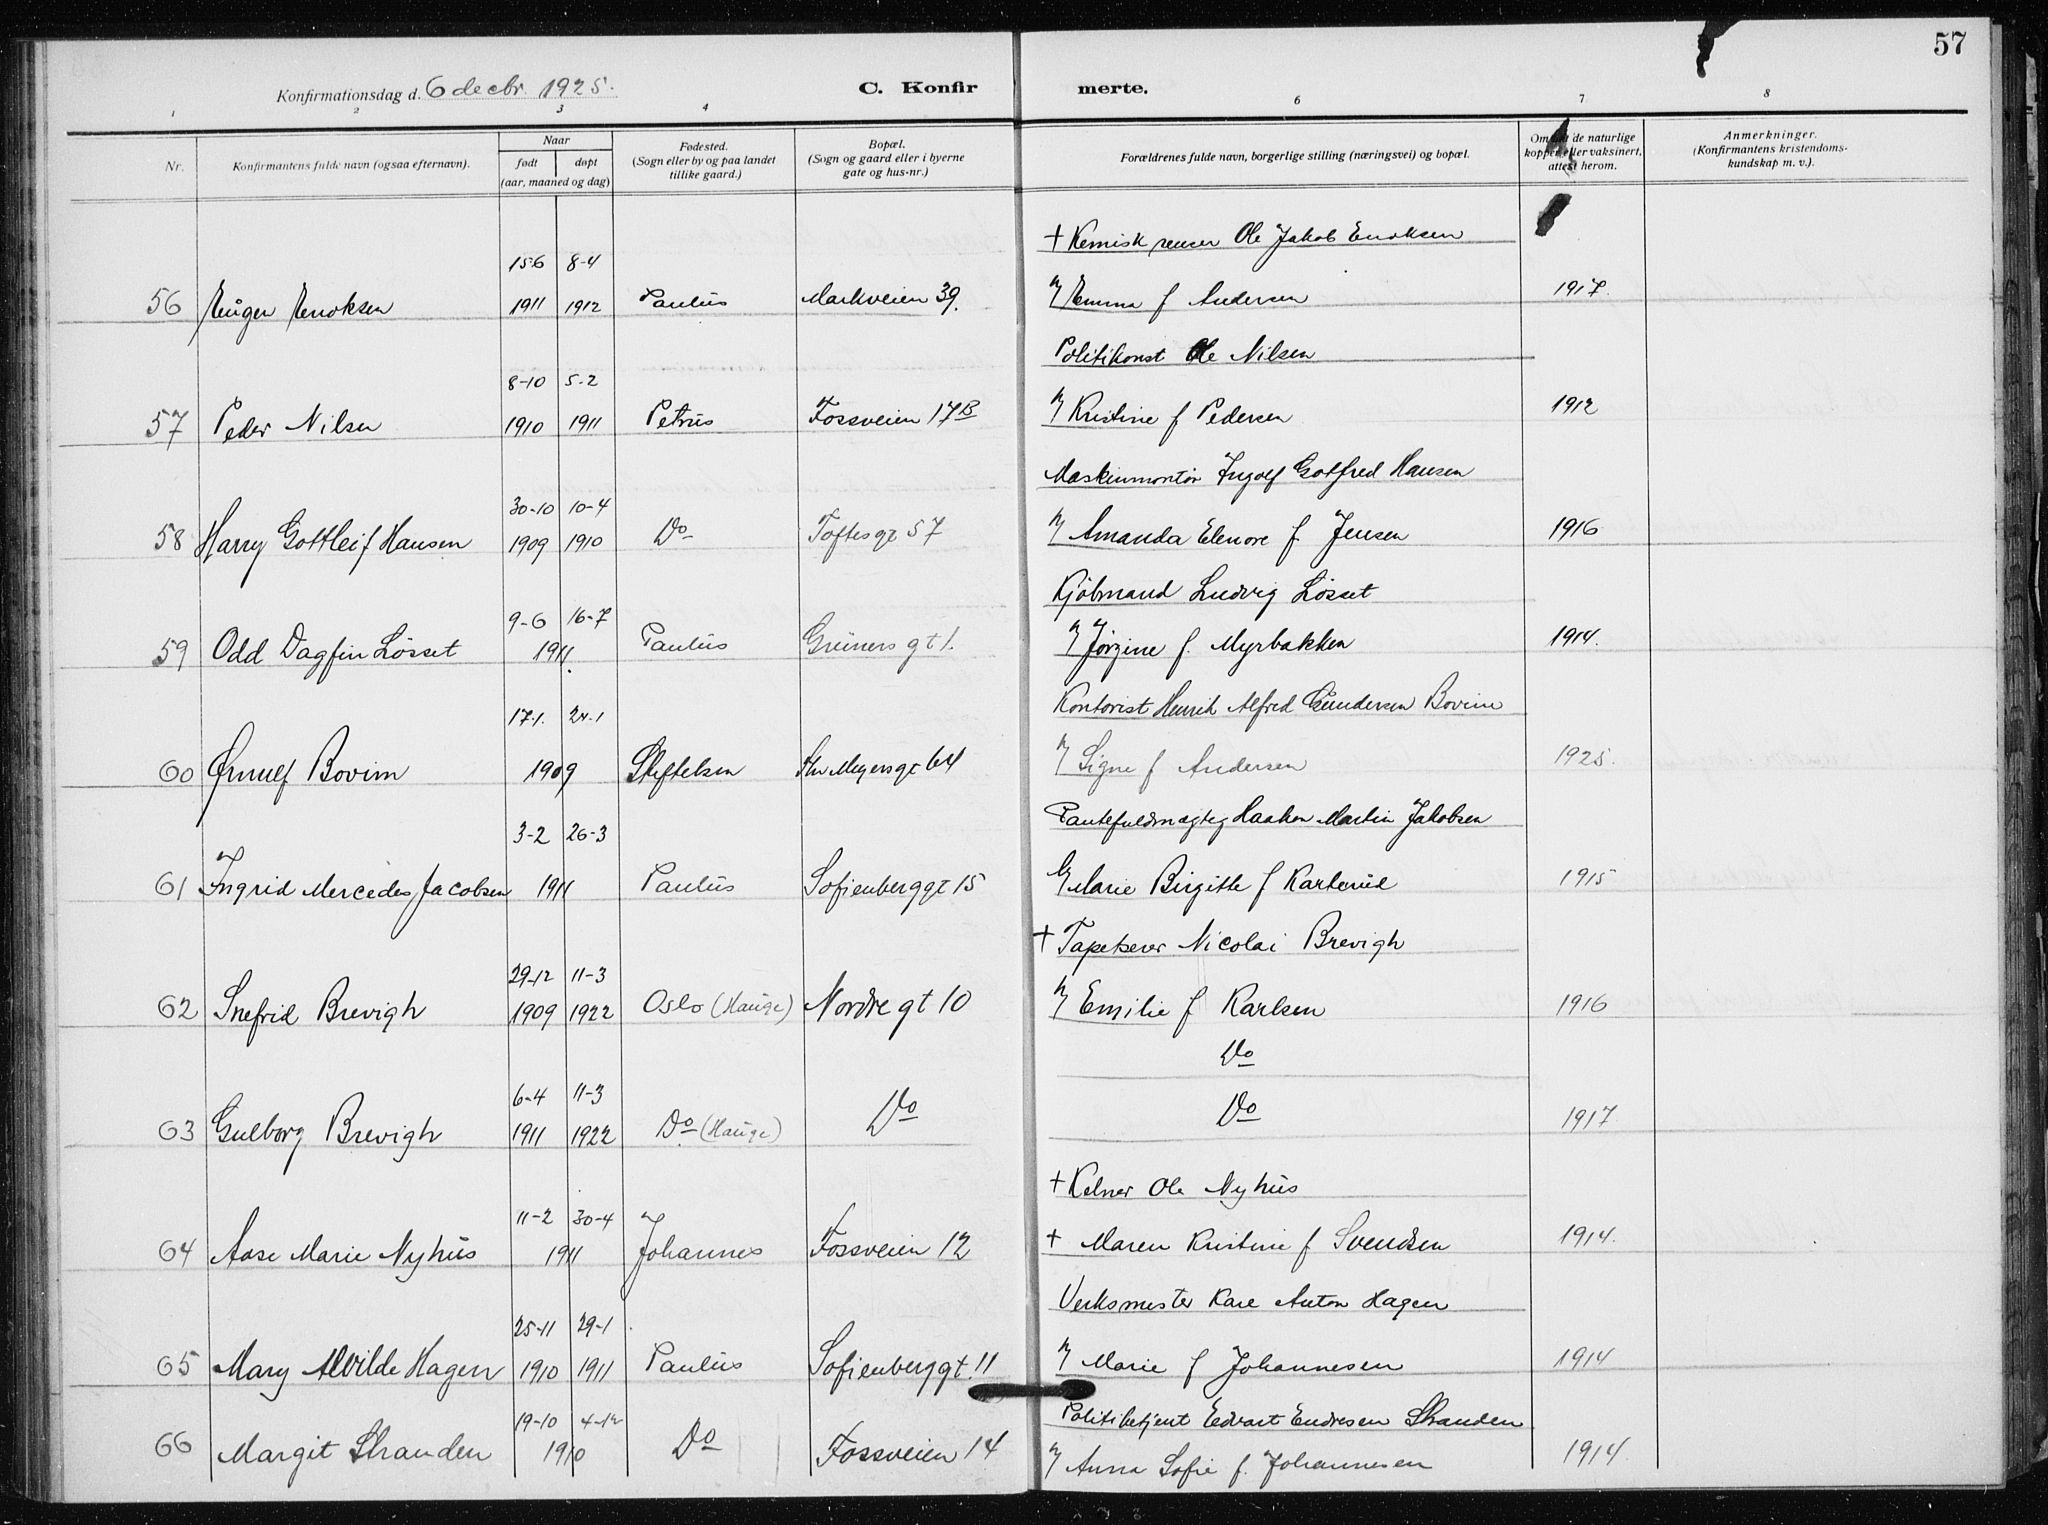 57
Konfirmationsdag d. 6 decbr. 1925.
C. Konfirmerte.
1 2 3 4 6 7 8
Nr.
Konfirmantens fulde navn (ogsaa efternavn).
Naar
født døpt
(aar, maaned og dag)
Fødested.
(Sogn eller by og paa landet
tillike gaard.)
Bopæl.
(Sogn og gaard eller i byerne
gate og hus-nr.)
Forældrenes fulde navn, borgerlige stilling (næringsvei) og bopæl.
Om de naturlige
kopper eller vaksinert,
attest herom.
Anmerkninger.
(Konfirmantens kristendoms-
kundskap m. v.).
+ Kemisk renser Ole Jakob Enoksen
15-6 8-4
56 Eugen Enoksen 1911 1912 Paulus Markveien 39. Emma f Andersen 1917.
Politikonst Ole Nilsen
8-10 5-2
57 Peder Nilsen 1910 1911 Petrus Fossveien 17B Kristine f Pedersen 1912
Maskinmontør Ingolf Gotfred Hansen
30-10 10-4
58 Harry Gottleif Hansen 1909 1910 Do Toftesgt 57 Amanda Elenore f. Jensen 1916
Kjøbmand Ludvig Løsset
9-6 16-7
59 Odd Dagfin Løsset 1911. Paulus Grüners gt 1. Jørgine f. Myrbakken 1914.
Kontorist Henrik Alfred Gundersen Bovim
17-1. 24-1
60 Ørnulf Bovim 1909 Stiftelsen Thv Meyersgt 64 Signe f Andersen 1925.
Pantefuldmægtig Haakon Martin Jakobsen
3-2 26-3
61 Ingrid Mercedes Jacobsen 1911 Paulus Sofienberggt 15 Marie Birgitte f Karterud 1915
+ Tapetserer Nicolai Brevigh
29-12 11-3
62 Snefrid Brevigh 1909 1922 Oslo (Hauge) Nordre gt 10 Emilie f Karlsen 1916
Do
6-4 11-3
63 Gulborg Brevigh 1911 1922 Do (Hauge) Do Do 1917
+ Kelner Ole Nyhus
11-2 30-4
64 Aase Marie Nyhus 1911 Johannes Fossveien 12 + Maren Kristine f Svendsen 1914.
Verksmester Kare Anton Hagen
25-11 29-1
65 Mary Alvilde Hagen 1910 1911 Paulus Sofienberggt. 11 Marie f Johannesen 1914
19-10 4-12 Politibetjent Edvart Endresen Stranden
66 Margit Stranden 1910 Do Fossveien 14 Anna Sofie f. Johannesen 1914